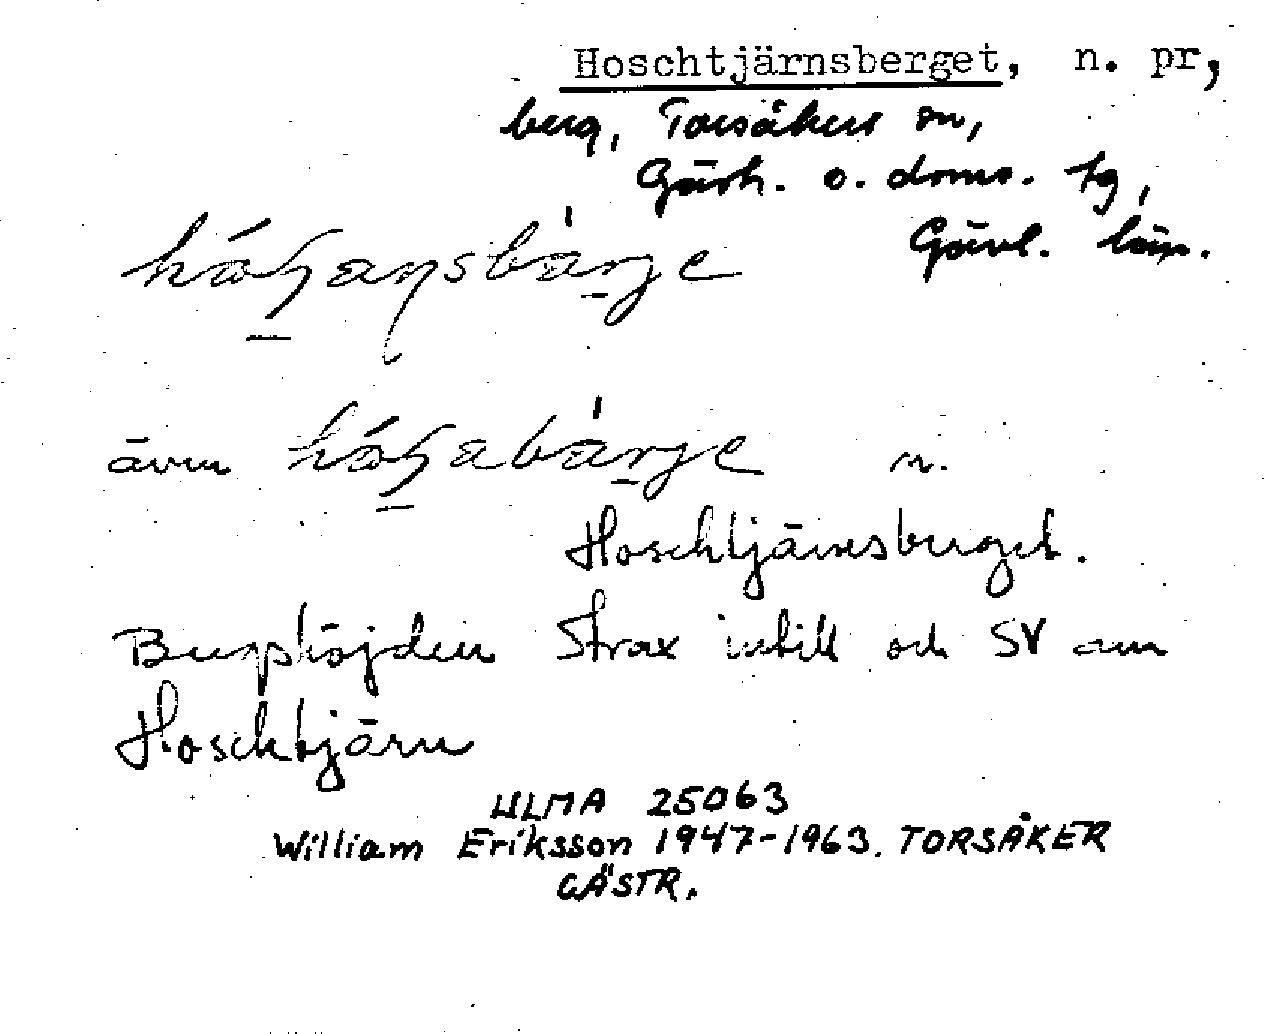 Hoschtjärnsberget, n. pr,
berg, Torsåkers sn,
Gävh. o. doms. tg,
Gävl. län.
även n.
Hoschtjärnsberget.
Bergshöjden strax intill och SV om
Hoschtjärn
ULMA 25063
William Eriksson 1947-1963. TORSÅKER
GÄSTR.